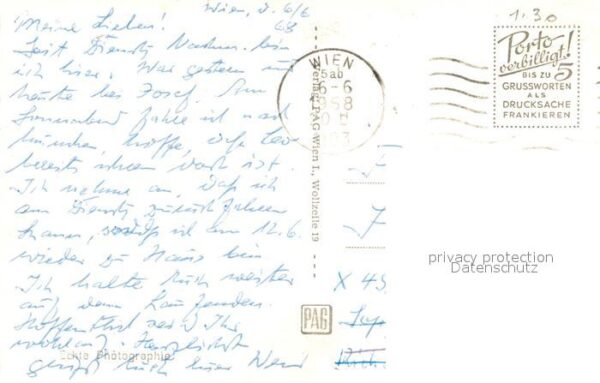 Wien, d. 6/6
68
Meine Lieben!
Seit Dienstg Nachm. bin
ich hier. War gestern und
heute bei Josef. Am
Sonnabend fahre ich nach
München, hoffe, daß
bereits schon dort ist.
Ich nehme an, daß ich
am Dienstg zurückfahren
kann, so daß ich am 12.6.
wieder zu Haus bin
Ich halte Euch weiter
auf dem Laufenden.
Hoffentlich seid Ihr
wohlauf. Herzlichst
grüßt Euch Euer
Echte Photographie
Verlag PAG Wien I., Wollzeile 19
PAG
WIEN
5ab
6-6
1968
1.30
Porto
verbilligt!
BIS ZU 5
GRUSSWORTEN
ALS
DRUCKSACHE
FRANKIEREN
privacy protection
Datenschutz
X 45